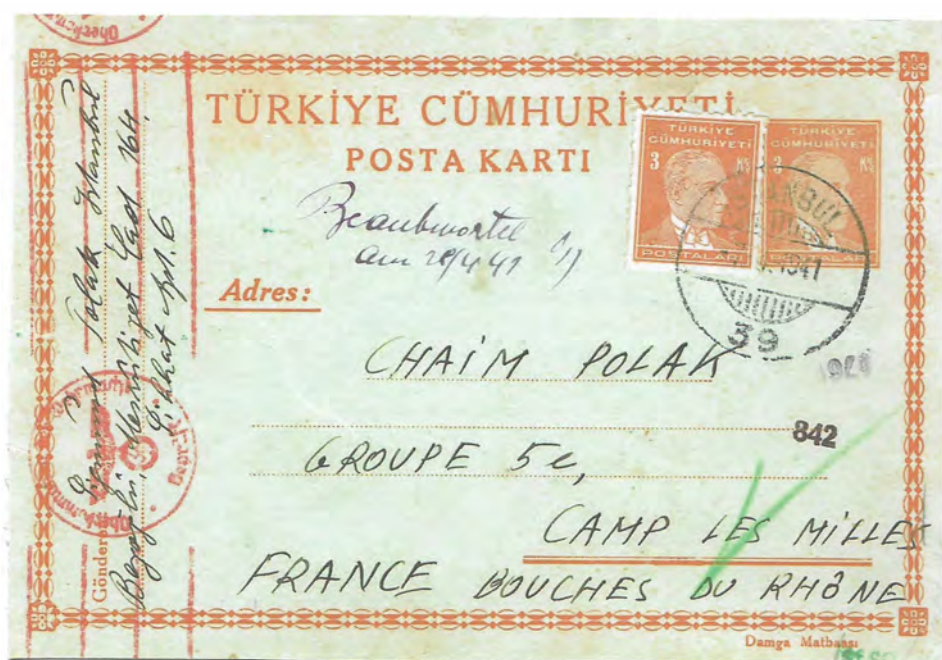 TÜRKİYE CÜMHURİYETİ
POSTA KARTI
TÜRKİYE
CÜMHURİYETİ
3 Kş
POSTALARI
TÜRKİYE
CÜMHURİYETİ
3 Kş
POSTALARI
İSTANBUL
1941
39
Beantwortet
am 29/4 41
Adres:
CHAİM POLAK
842
GROUPE 5e,
CAMP LES MİLLES
FRANCE BOUCHES DU RHÔNE
Damga Matbaası
Polak Istanbul
Beyoğlu, Meşrutiyet Cad 164,
apt. 6